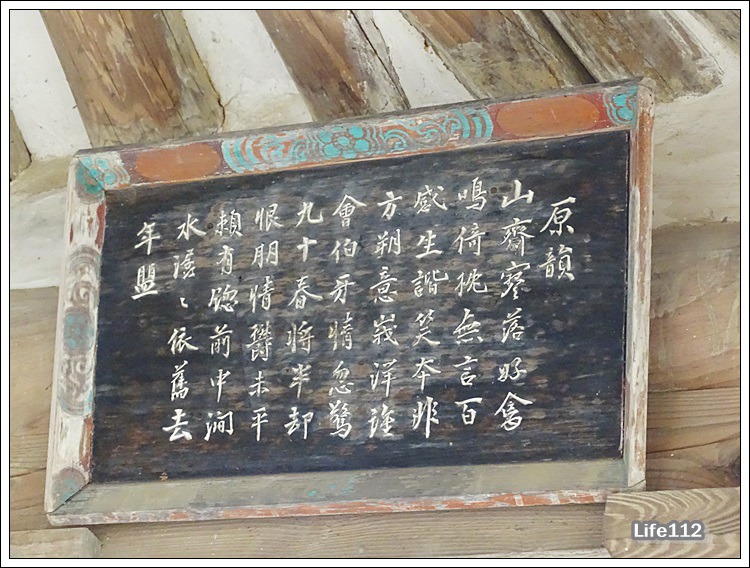 原韻
山齋寥落好禽
鳴倚枕無言百
感生諧笑本非
方朔意峩洋誰
會伯牙情忽驚
九十春將半却
恨朋情鬱未平
賴有窓前中澗
水潺〻依舊去
年盟
Life112